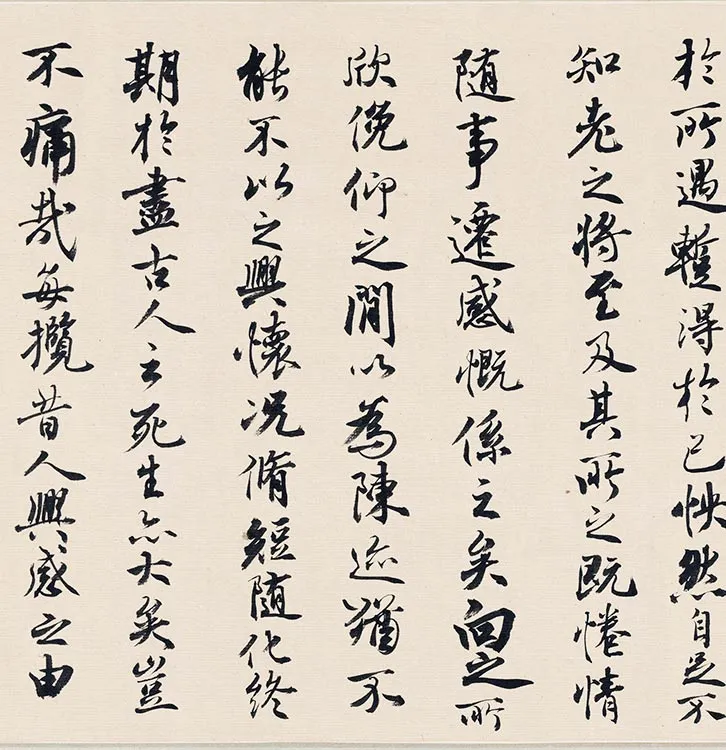 於所遇蹔得於己怏然自足不
知老之將至及其所之既惓情
随事遷感慨係之矣向之所
欣俛仰之間以為陳迹猶不
能不以之興懷况脩短随化終
期於盡古人云死生亦大矣豈
不痛哉每攬昔人興感之由